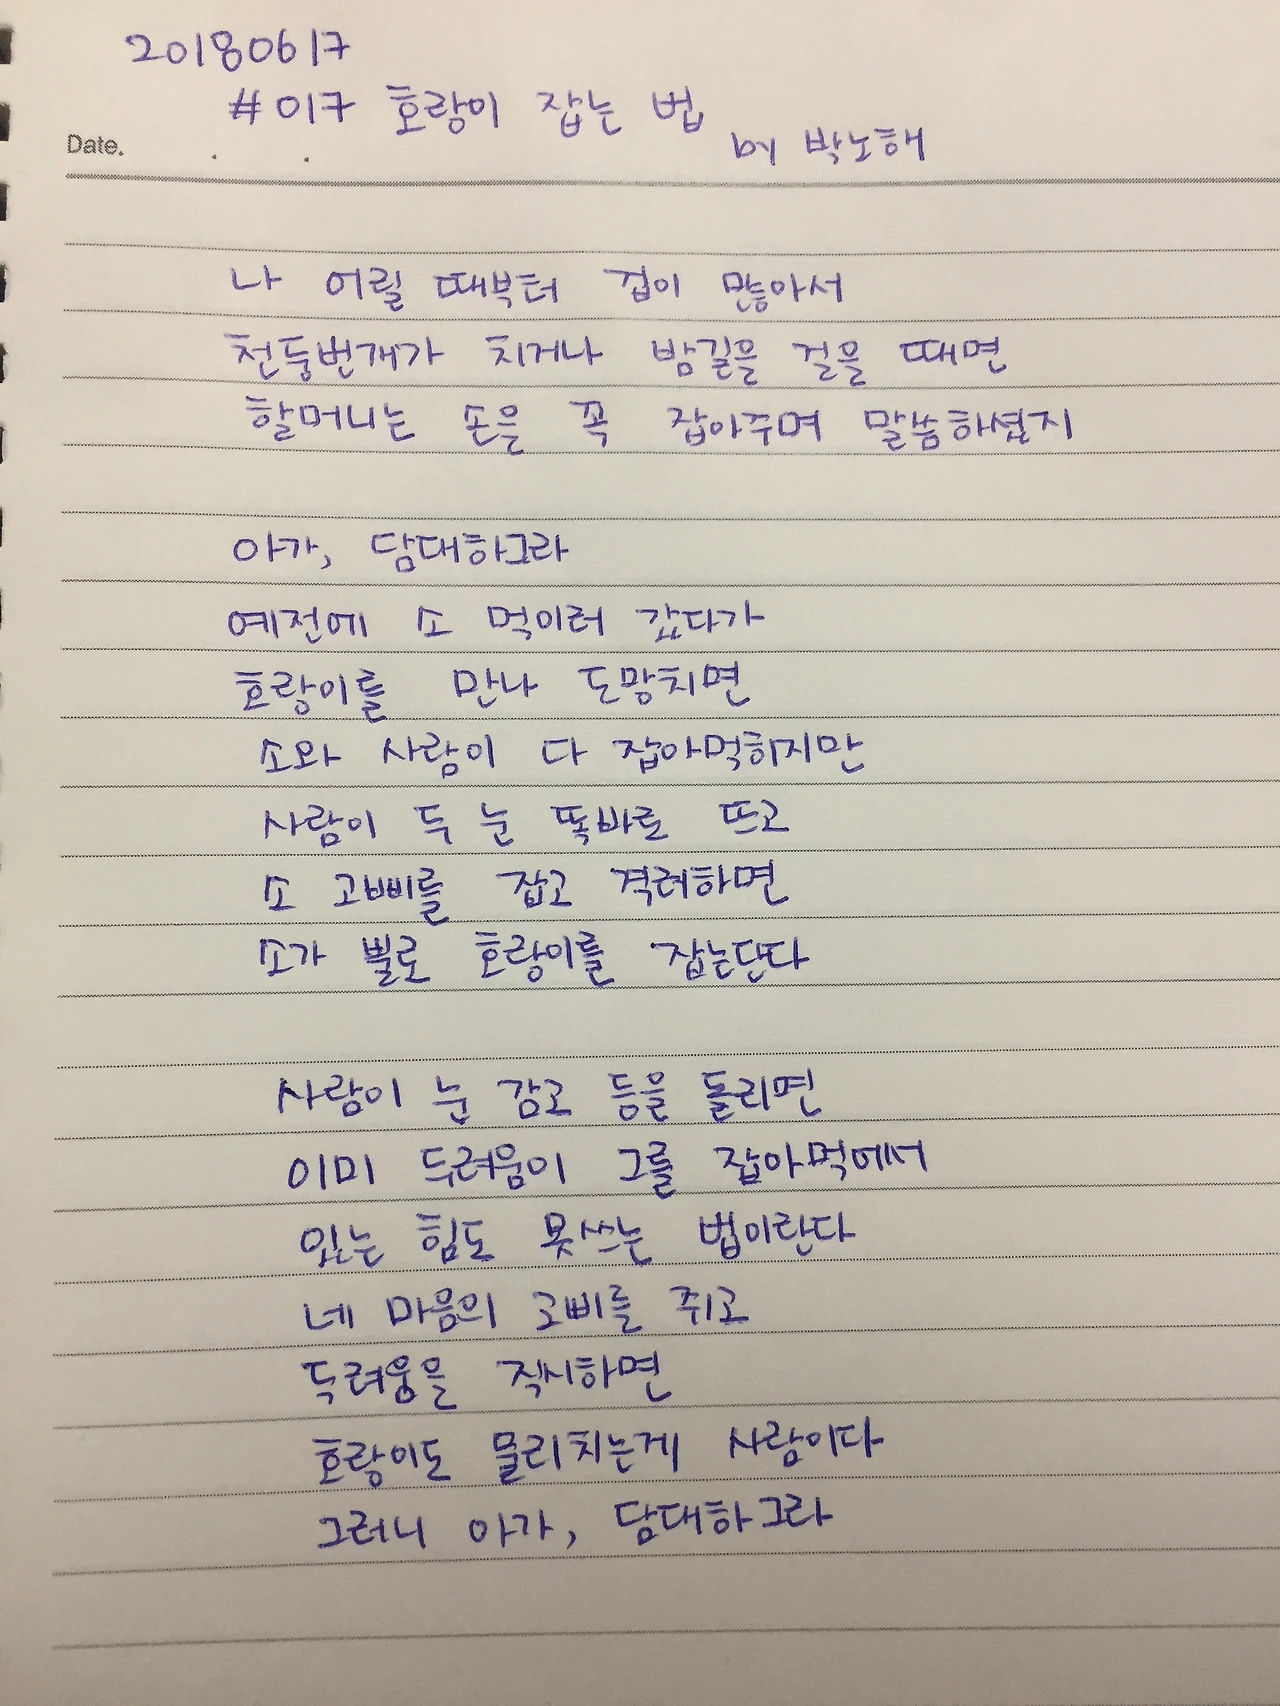 20180617
#017 호랑이 잡는 법
by 박노해
Date.
나 어릴 때부터 겁이 많아서
천둥번개가 치거나 밤길을 걸을 때면
할머니는 손을 꼭 잡아주며 말씀하셨지
아가, 담대하그라
예전에 소 먹이러 갔다가
호랑이를 만나 도망치면
소와 사람이 다 잡아먹히지만
사람이 두 눈 똑바로 뜨고
소 고삐를 잡고 격려하면
소가 뿔로 호랑이를 잡는단다
사람이 눈 감고 등을 돌리면
이미 두려움이 그를 잡아먹어서
있는 힘도 못쓰는 법이란다
네 마음의 고삐를 쥐고
두려움을 직시하면
호랑이도 물리치는게 사람이다
그러니 아가, 담대하그라